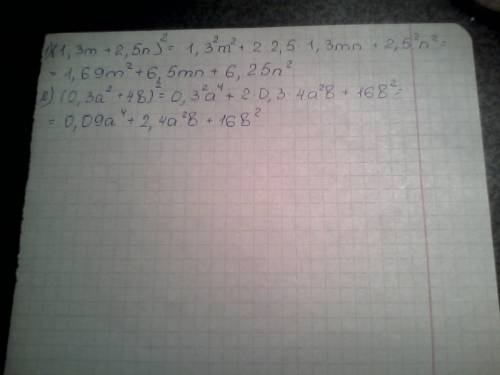 1)(1,3m + 2,5n)² = 1,3²m² + 2·2,5·1,3mn + 2,5²n² =
= 1,69m² + 6,5mn + 6,25n²
2) (0,3a² + 4в)² = 0,3²a⁴ + 2·0,3·4a²в + 16в² =
= 0,09a⁴ + 2,4a²в + 16в²